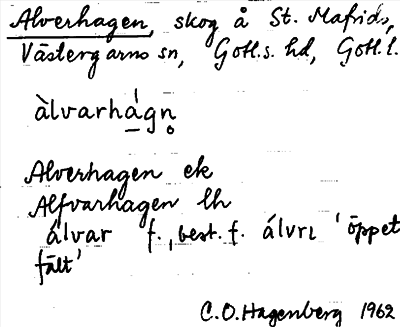 Alverhagen, skog å St. Mafrids,
Västergarns sn, Gotl.s. hd, Gotl. l.
àlvarhágn̥
Alverhagen ek
Alfvarhagen lh
álvar f., best. f. álvrı 'öppet
fält'
C.O. Hagenberg 1962